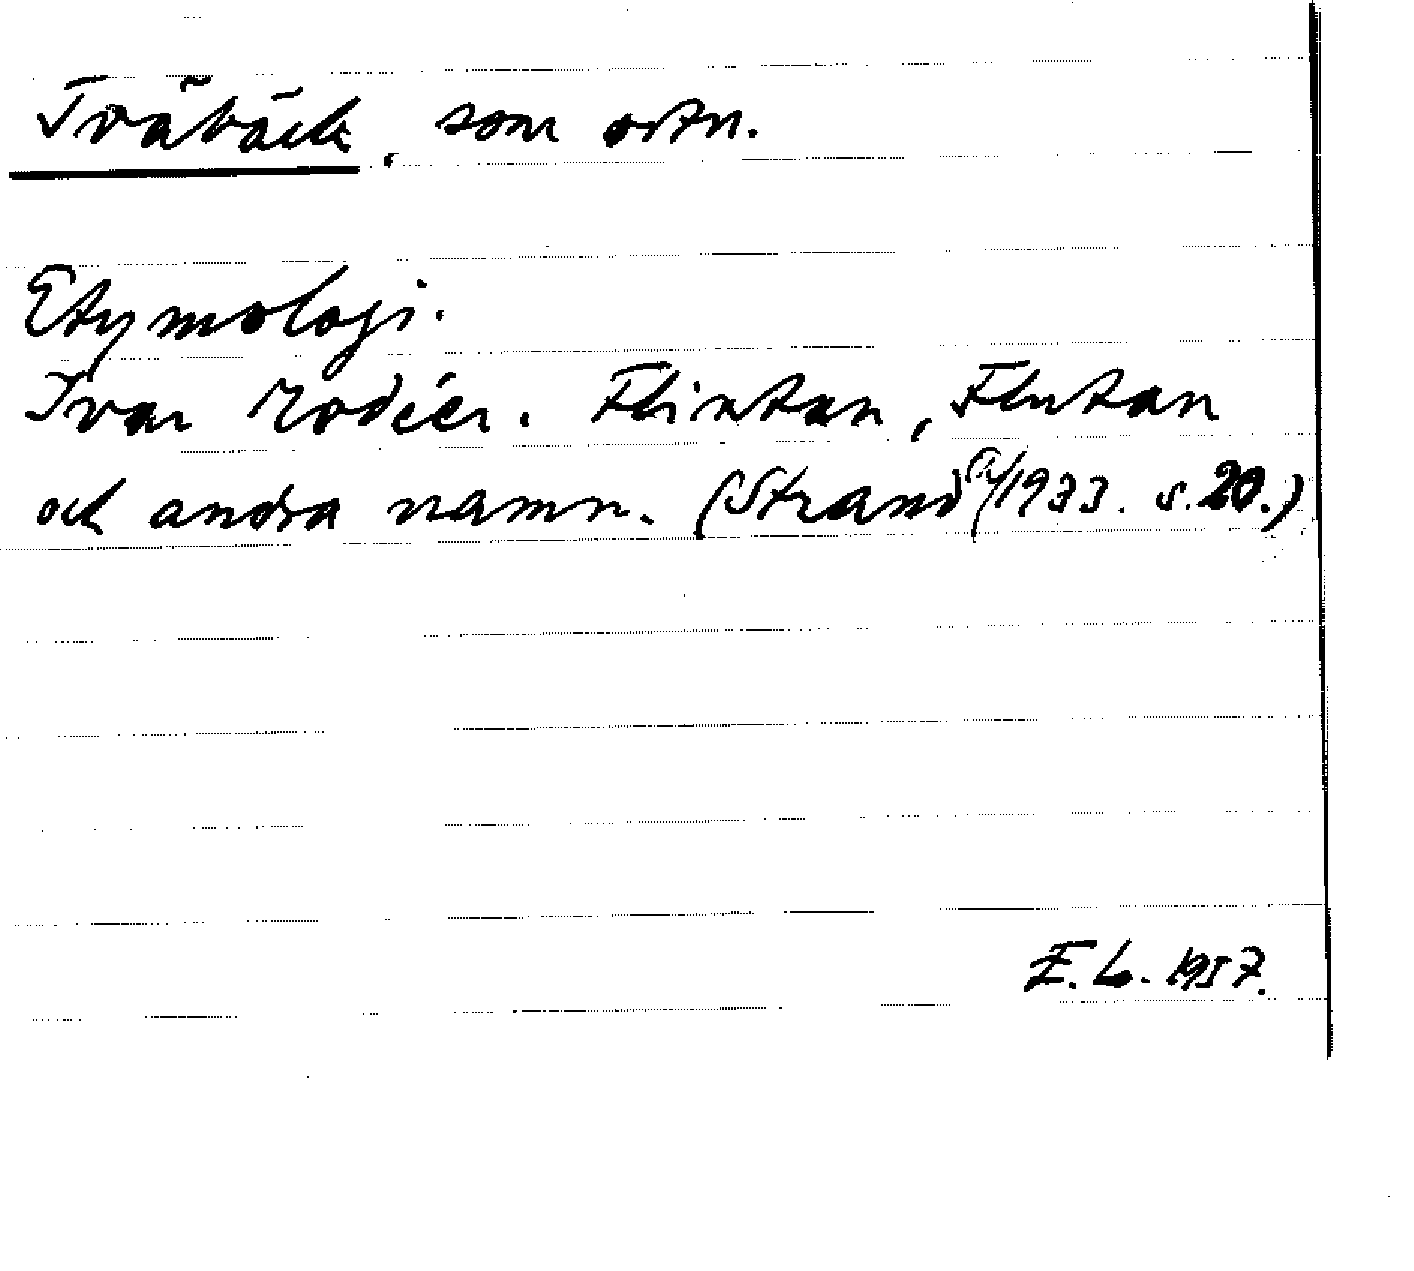 Träbäck, som ortn.
Etymologi.
Ivar Modéer. Flintan, Flutan
och andra namn. (Strand 1933. s. 20.)
E. L. 1957.